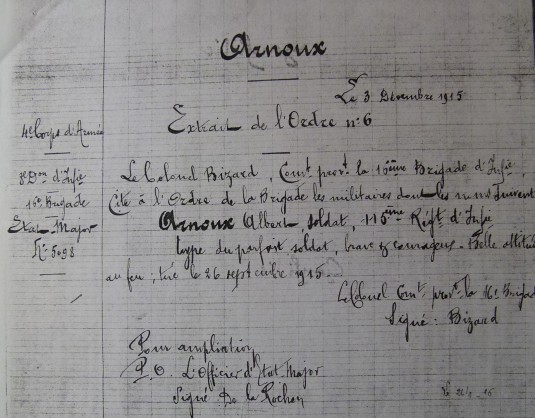 Arnoux
Le 3 Décembre 1915
Extrait de l'Ordre n° 6
4e Corps d'Armée
8e Don d'Infie
16e Brigade
Etat Major
N° 5098
Le Colonel Bizard, Comt provt la 16ème Brigade d'Infie,
Cite à l'Ordre de la Brigade les militaires dont les noms suivent
Arnoux Albert, soldat, 115ème Régt d'Infie
type du parfait soldat, brave & courageux - Belle attitude
au feu, tué le 26 septembre 1915.
Le Colonel Comt provt la 16e Brigade
Signé : Bizard
Pour ampliation
P.O. L'Officier d'Etat Major
Signé De la Rochon